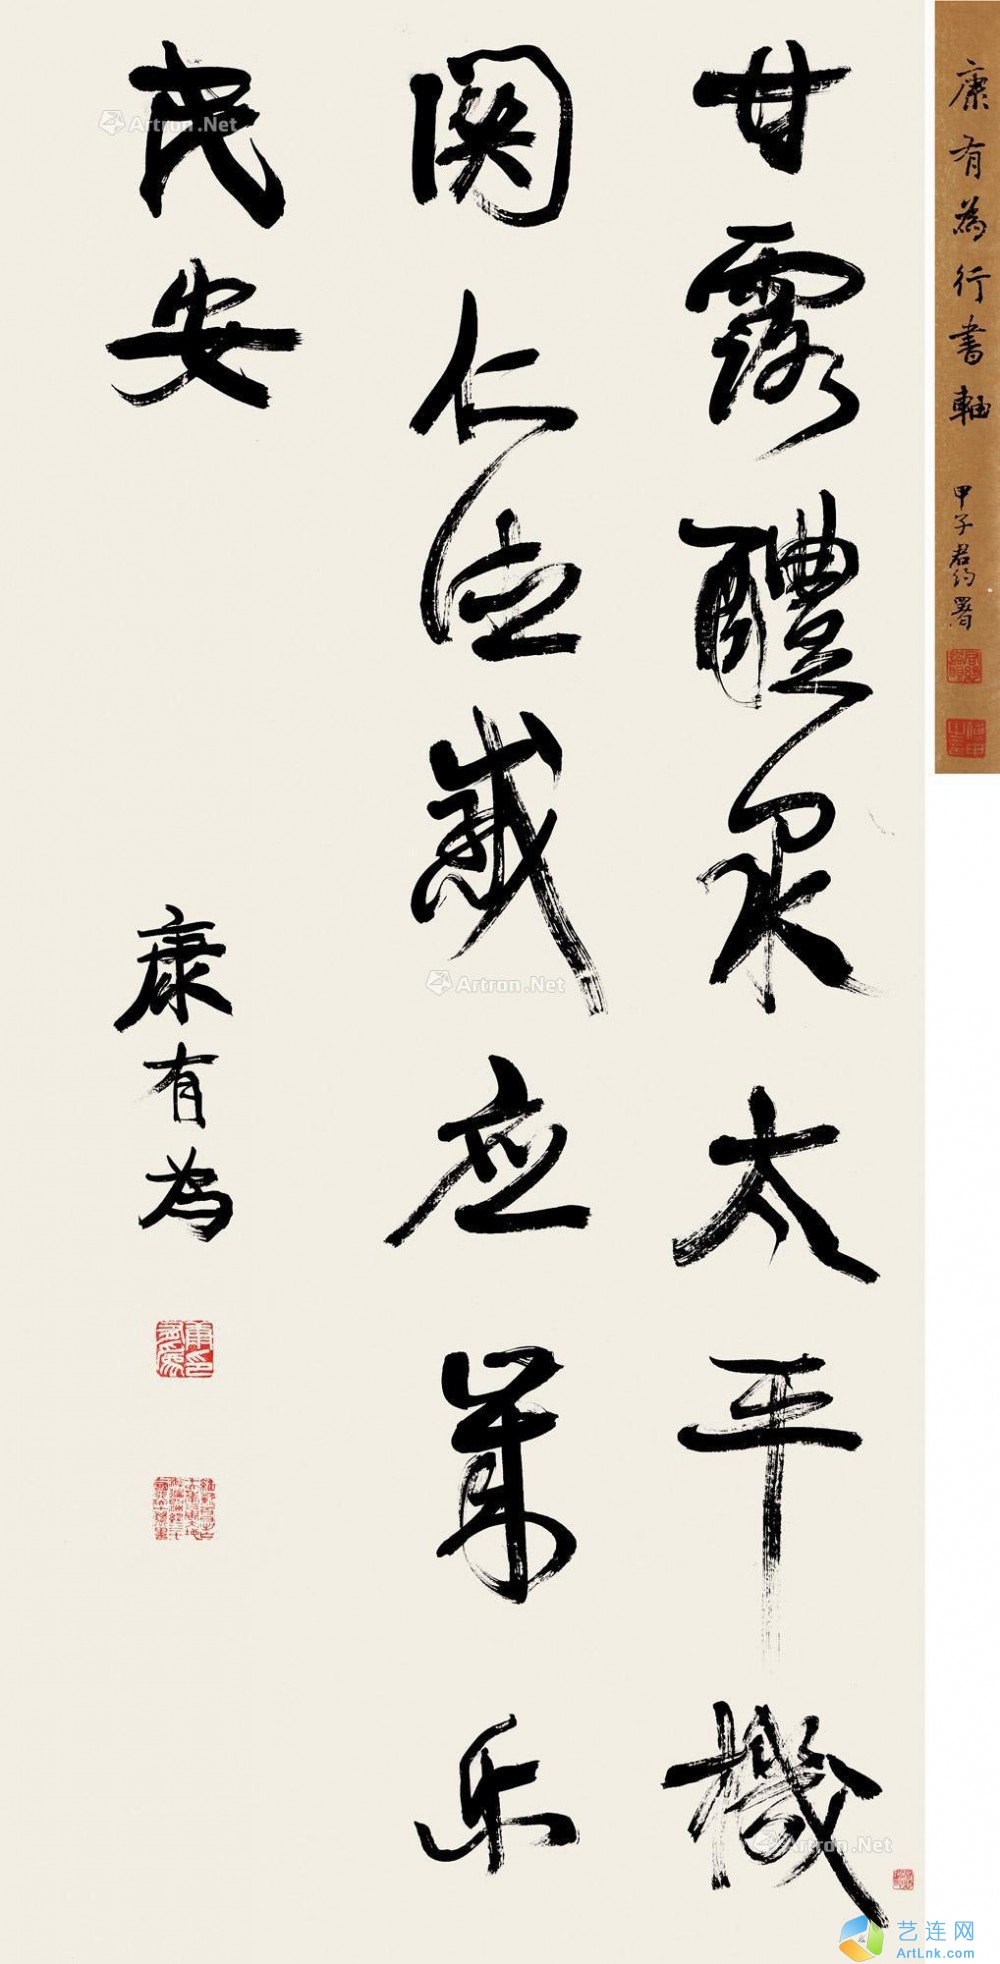 康有為行書軸 甲子君約署
甘露醴泉太平機
関仁德感应業乐
民安
康有為
康印有為
Artron.Net
Artron.Net
Artron.Net
艺连网
ArtLnk.com